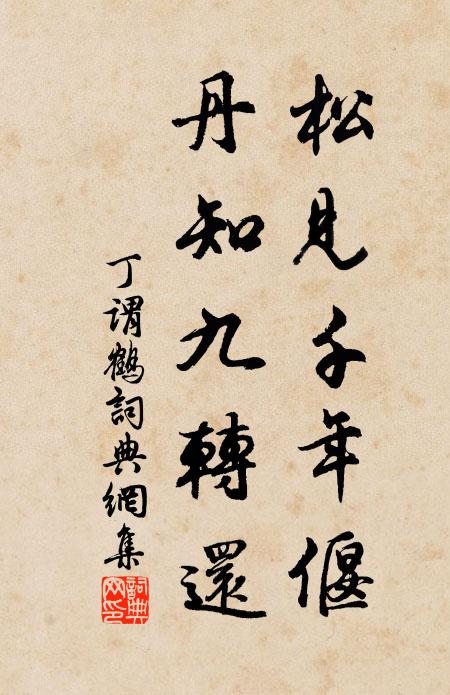 松見千年偃
丹知九轉還
丁謂鶴詞典網集
詞典网印